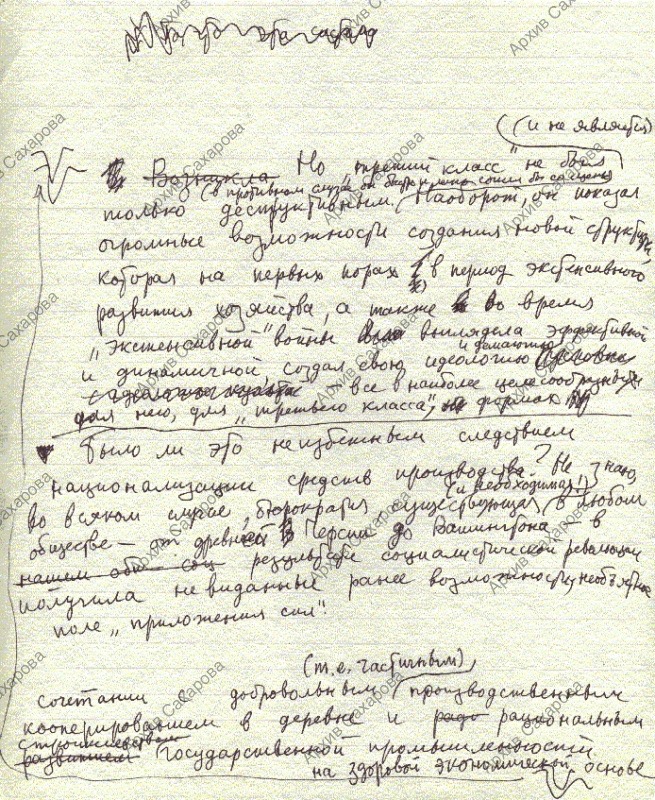 (и не является)
Возникла Но „третий класс" не был
(в противном случае он бы
только деструктивным. Наоборот, он показал
огромные возможности создания новой структуры,
которая на первых порах в период экстенсивного
развития хозяйства, а также во время
„экстенсивной" войны выглядела эффективной
и динамичной, создал свою идеологию
все в наиболее целесообразных
для него, для „третьего класса", формах
Было ли это неизбежным следствием
национализации средств производства? Не знаю,
(и необходимая!)
во всяком случае, бюрократия, существующая в любом
обществе — от древней Персии до Вашингтона в
нашем результате социалистической революции
получила невиданные ранее возможности, необъятное
поле „приложения сил".
(т.е. частичным)
сочетании с добровольным производственным
кооперированием в деревне и рациональным
строительством
развитием государственной промышленности
на здоровой экономической основе
Архив Сахарова